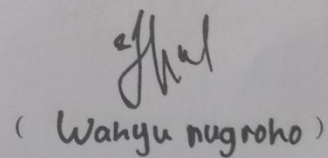 ( Wahyu nugroho )